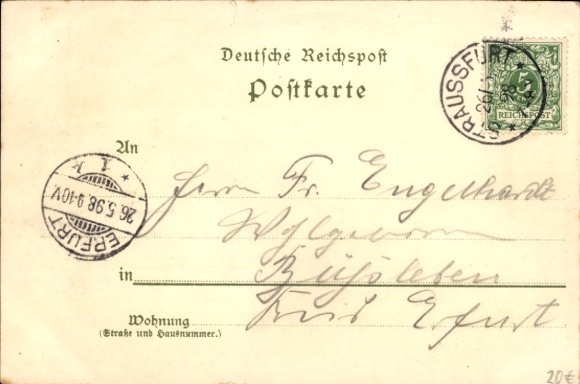 Deutsche Reichspost
Postkarte
STRAUSSFURT
26/
98
5
REICHSPOST
An
Herrn Fr. Engelhardt
Wohlgeboren
1. k
26.5.98.9-10V.
ERFURT
in
Büßleben
Kreis Erfurt
Wohnung
(Straße und Hausnummer.)
20€